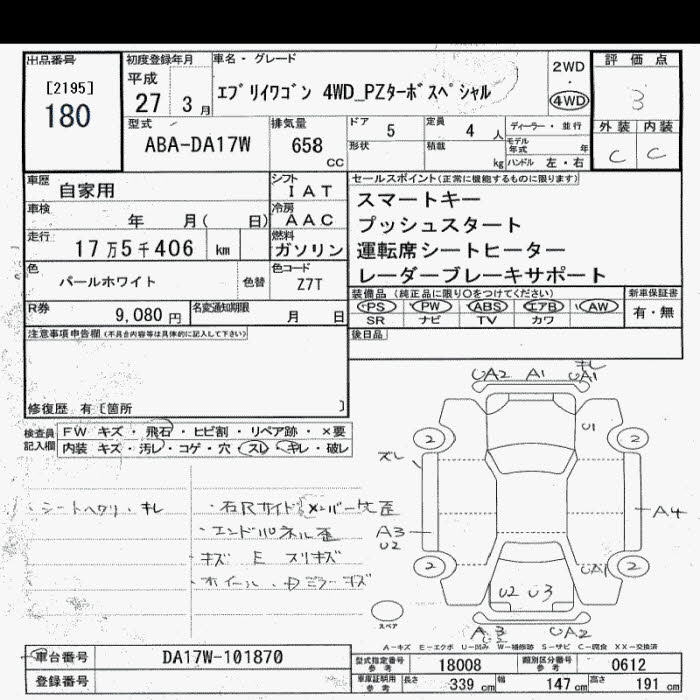 出品番号
[2195]
180
初度登録年月
平成
27 3月
車名・グレード
エブリイワゴン 4WD_PZターボスペシャル
2WD
・
4WD
評価点
3
外装 内装
C C
型式
ABA-DA17W
排気量
658
CC
ドア 5
形状
定員 4 人
積載 kg
ディーラー・並行
モデル年式 年
ハンドル 左・右
車歴 自家用
シフト
IAT
車検 年 月( 日)
冷房
AAC
走行 17万5千406 km
燃料
ガソリン
色 パールホワイト 色替
色コード
Z7T
R券 9,080円
名変通知期限 月 日
セールスポイント(正常に機能するものに限ります)
スマートキー
プッシュスタート
運転席シートヒーター
レーダーブレーキサポート
装備品(純正品に限り○をつけてください)
PS PW ABS エアB AW
SR ナビ TV カワ
新車保証書
有・無
後日品
注意事項申告欄(不具合内容等は具体的に記入して下さい)
修復歴 有〔箇所 〕
検査員記入欄
FW キズ・飛石・ヒビ割・リペア跡・×要
内装 キズ・汚レ・コゲ・穴・スレ・キレ・破レ
・シートヘタリ・キレ
・右Rサイド
・エンドパネル歪
キズ E スリキズ
ホイール・ ミラーキズ
キレ
UA2 A1 UA1
U1
2 2
ズレ
A3
U2
A4
2 2
UA1
U2 U3
スペア
A3
U2 UA2
A-キズ E-エクボ U-凹み W-補修跡 S-サビ C-腐食 XX-交換済
車台番号 DA17W-101870
登録番号
型式指定番号
参考
18008
類別区分番号
参考
0612
車庫証明用
参考
長さ 339cm 幅 147cm 高さ 191cm